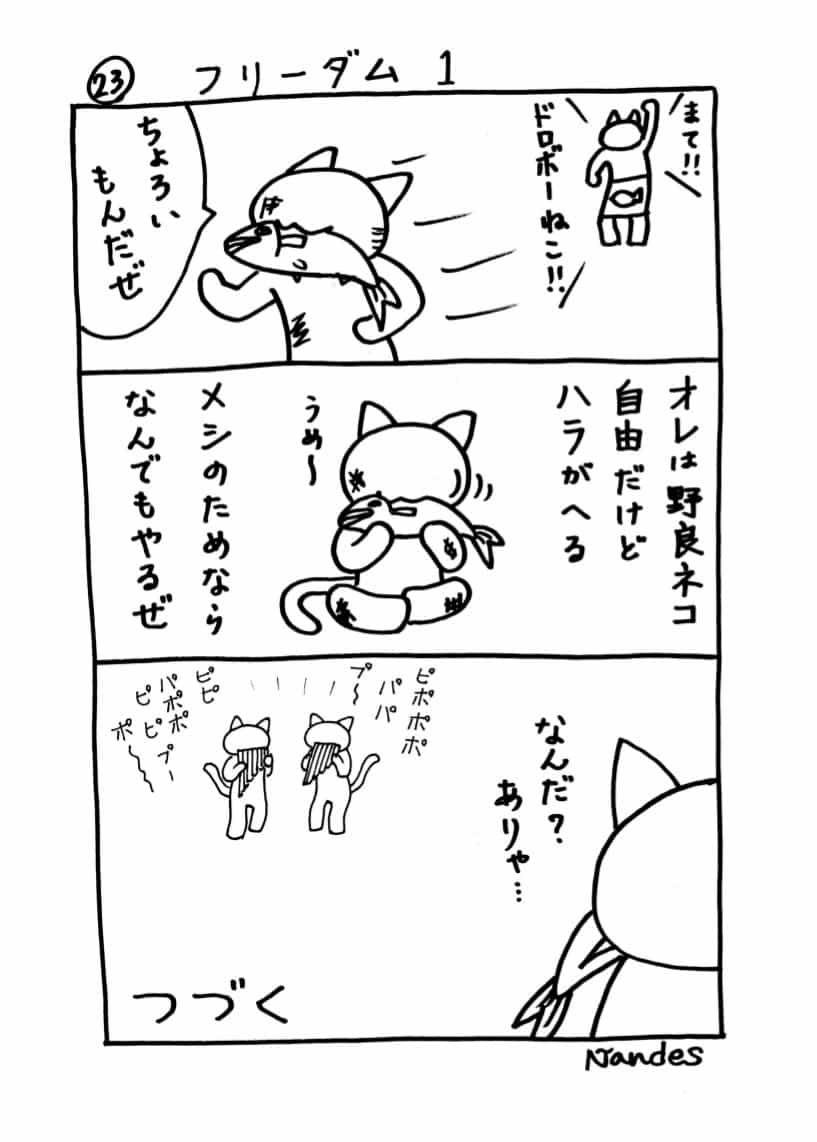 23
フリーダム 1
まて!!
ドロボーねこ!!
ちょろい
もんだぜ
オレは野良ネコ
自由だけど
ハラがへる
うめ〜
メシのためなら
なんでもやるぜ
なんだ?
ありゃ…
ピポポポ
パパ
プ〜
ピピ
パポポ
ピピプー
ポ〜
つづく
Nandes